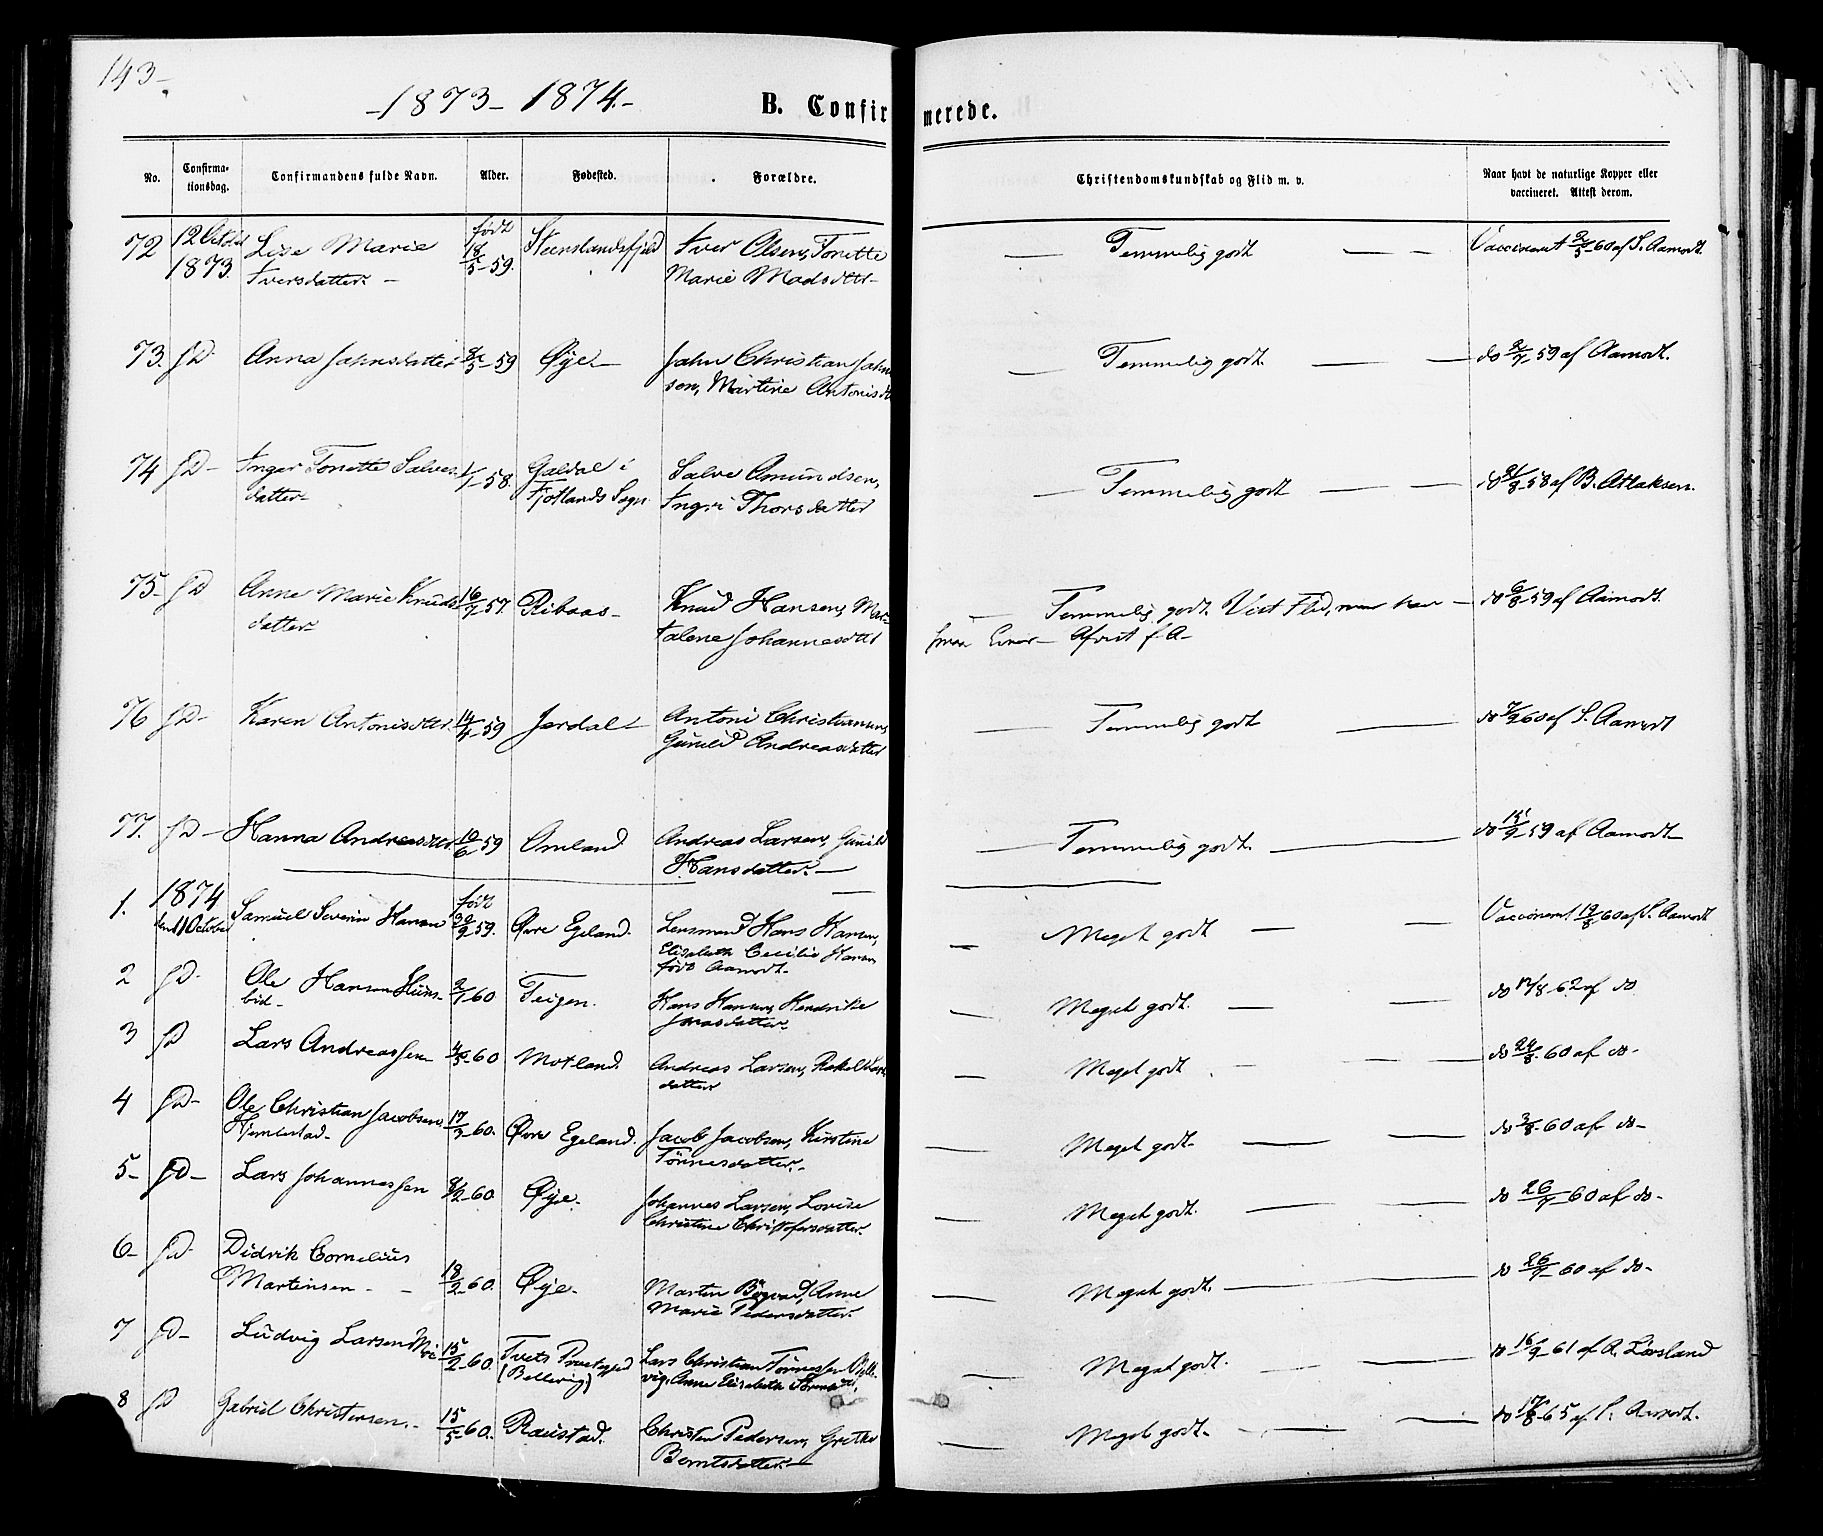 143-
-1873- 1874.-
B. Confirmerede.
No.
Confirma-
tionsdag.
Confirmandens fulde Navn.
Alder.
Fødested.
Forældre.
Christendomskundskab og Flid m. v.
Naar havt de naturlige Kopper eller
vaccineret. Attest derom.
72 12 Octobr 1873 Lise Marie født 18/5-59. Steenslandsfjeld Iver Olsen, Tonette — Temmelig godt — — Vaccineret 2/5 60 af S. Aamodt.
Iversdatter. — Marie Madsdttr-
73. JD. Anna Jahnsdatter 59 Øye- Jahn Christian Jahn — Temmelig godt. — — do 59 af Aamodt.
sen, Martine Antonisdt
74 JD- Inger Tonette Salves 1/1-58. Galdal i Salve Amundsen, — Temmelig godt — — do 58 af B. Atlaksen.
datter- Fjotlands Sogn Ingri Thorsdatter
75- JD Anne Marie Knuds 16/7 57. Ribaas- Knud Hansen, Mar- — Temmelig godt. Vist Flid, men har — do 6/8-59 af Aamodt.
datter- talene Johannesdttr Evner- Afvist f A-
76 JD- Karen Antonisdttr. 14/4-59 Jerdal- Antoni Christiansen, — Temmelig godt — do 7/2 60 af S. Aamodt
Gunild Andreasdatter
77. JD- Hanna Andreasdttr. 10/6-59 Omland Andreas Larsen, Gunild — Temmelig godt. — do 15/9-59 af Aamodt-
Hansdatter. —
1. 1874 den 11 October Samuel Severin Hansen født 59. Øvre Egeland. Lensmand Hans Hansen, — Meget godt — — Vaccineret 19/8-60 af S. Aamodt
Elisabeth Cecilie Hansen
født Aamodt.
2 JD- Ole Hansen Huns- 2/1-60 Teigen. Hans Hansen, Hendrikke — Meget godt. — — do 17/8-62 af do
bid- Jonasdatter-
3 JD Lars Andreassen 4/5-60 Motland. Andreas Larsen, Rakel Lars — Meget godt — — do 24/8-60 af do-
datter
4 JD- Ole Christian Jacobsen 17/3-60. Øvre Egeland. Jacob Jacobsen, Kirstine — Meget godt. — — do 3/8-60 af do-
Tønnesdatter-
5- JD- Lars Johannessen 2-60 Øye. Johannes Larsen, Lovise — Meget godt. — — do 26/7-60 af do-
Christine Christofersdatter.
6- JD- Didrik Cornelius
Martinsen - - 18/2-60. Øye- Martin Anne — Meget godt. — do 26/7-60 af do-
Marie Pedersdatter.
7 JD- Ludvig Larsen Moi 15/2-60 Tvets Præstegjeld Lars Christian Tønnessen — Meget godt. — — do 16/9-61 af A. Larsland
Anne Elisabeth
8 JD Gabriel Christensen. - 15/5-60. Raustad. Christen Pedersen, Grethe — Meget godt. — — do 17/8-65 af S. Aamodt.
Berntsdatter-